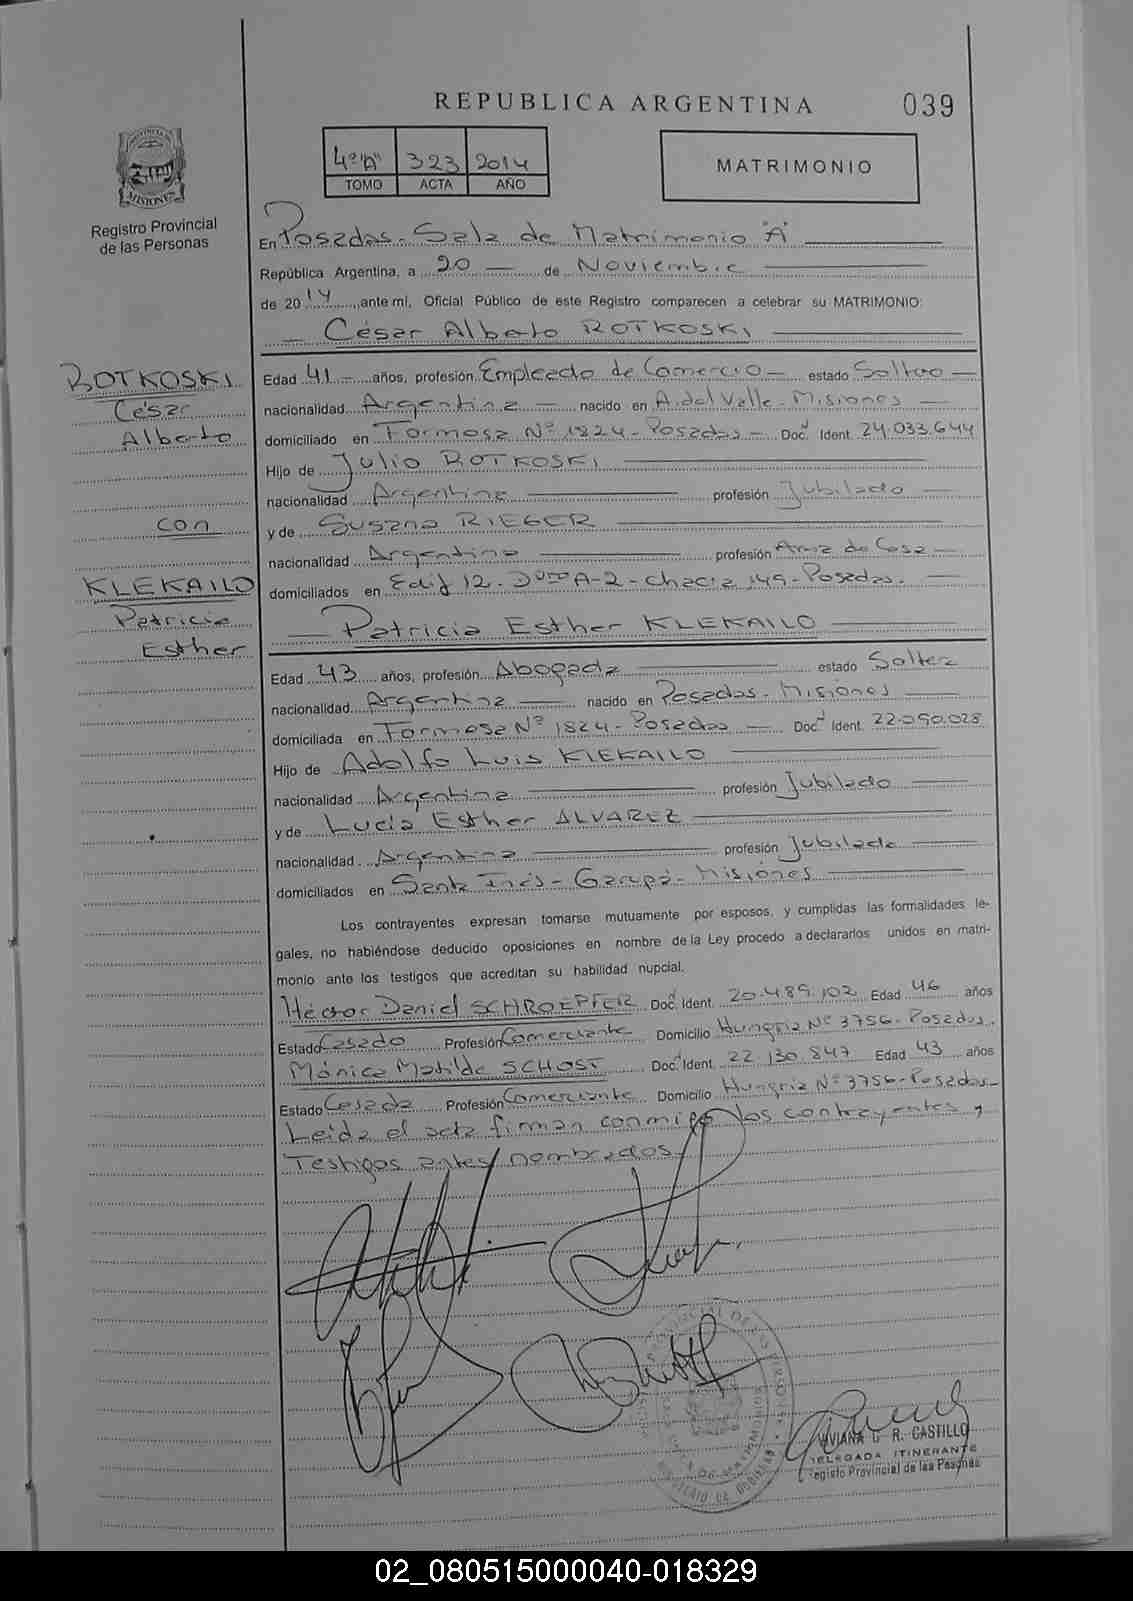 REPUBLICA ARGENTINA
039
4º "A" 323 2014
TOMO ACTA AÑO
MATRIMONIO
PROVINCIA DE
MISIONES
Registro Provincial
de las Personas
En Posadas - Sala de Matrimonio "A"
República Argentina, a 20 de Noviembre
de 2014, ante mí, Oficial Público de este Registro comparecen a celebrar su MATRIMONIO:
César Alberto ROTKOSKI
ROTKOSKI
César
Alberto
con
KLEKAILO
Patricia
Esther
Edad 41 años, profesión Empleado de Comercio estado Soltero
nacionalidad Argentina nacido en A. del Valle - Misiones
domiciliado en Formosa Nº 1824 - Posadas - Doc. Ident. 24.033.644
Hijo de Julio ROTKOSKI
nacionalidad Argentina profesión Jubilado
y de Susana RIEGER
nacionalidad Argentina profesión Ama de Casa
domiciliados en Edif 12 - A-2 - Chacra 149 - Posadas.
Patricia Esther KLEKAILO
Edad 43 años, profesión Abogada estado Soltera
nacionalidad Argentina nacido en Posadas - Misiones
domiciliada en Formosa Nº 1824 - Posadas - Doc. Ident. 22.090.028
Hijo de Adolfo Luis KLEKAILO
nacionalidad Argentina profesión Jubilado
y de Lucia Esther ALVAREZ
nacionalidad Argentina profesión Jubilada
domiciliados en Santa Inés - Garupá - Misiones
Los contrayentes expresan tomarse mutuamente por esposos, y cumplidas las formalidades le-
gales, no habiéndose deducido oposiciones en nombre de la Ley procedo a declararlos unidos en matri-
monio ante los testigos que acreditan su habilidad nupcial.
Héctor Daniel SCHROEPFER Doc. Ident. 20.489.102 Edad 46 años
Estado Casado Profesión Comerciante Domicilio Hungria Nº 3756 - Posadas.
Mónica Matilde SCHOST Doc. Ident. 22.130.847 Edad 43 años
Estado Casada Profesión Comerciante Domicilio Hungria Nº 3756 - Posadas
Leida el acta firman conmigo los contrayentes y
Testigos antes nombrados.
VIVIANA R. CASTILLO
DELEGADA ITINERANTE
Registo Provincial de las Pesonas
02_080515000040-018329